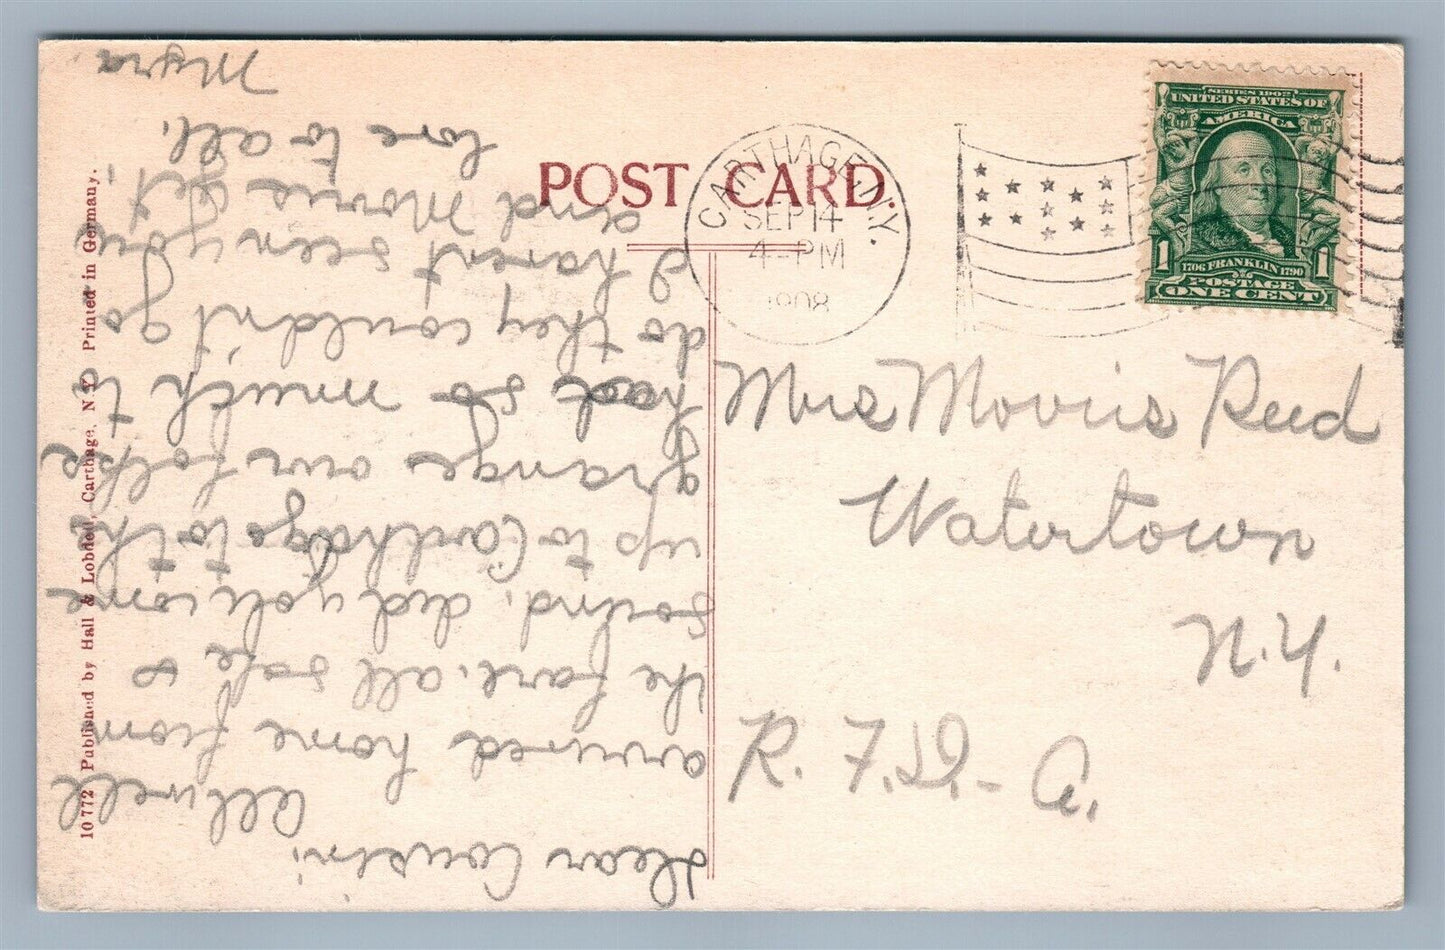 POST CARD.
CARTHAGE N.Y.
SEP 14
4-PM
1908
SERIES 1902
UNITED STATES OF
AMERICA
1706 FRANKLIN 1790
POSTAGE
1 ONE CENT 1
Mrs Morris Reed
Watertown
N.Y.
R.F.D.-A.
Dear Cousin:
All well
arrived home from
the fare, all safe &
sound, did you come
up to Carthage to the
grange our folks
had so much to
do they couldn't go
I havent seen you
and Morris yet.
love to all.
Myra.
10772 Published by Hall & Lobdell, Carthage, N.Y. Printed in Germany.